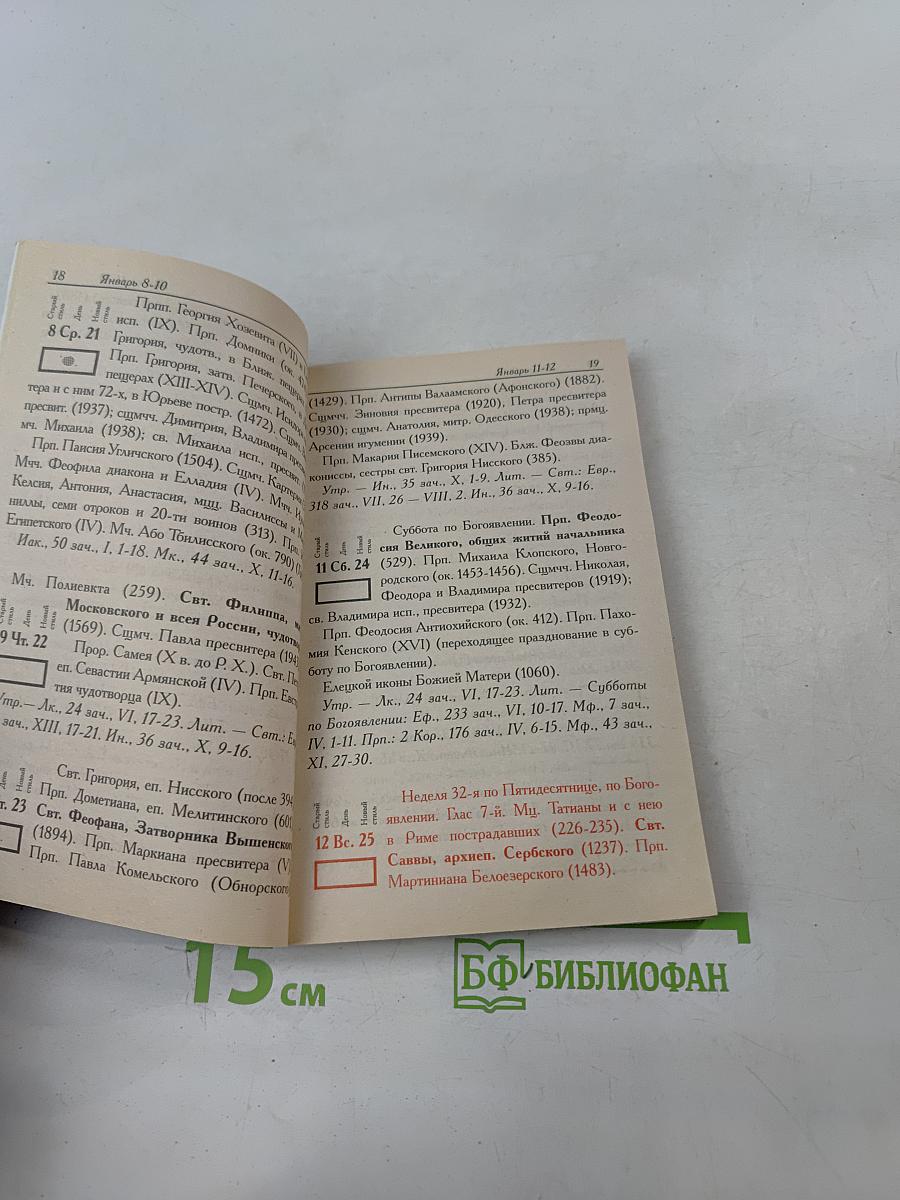 18 Январь 8-10
Старый стиль День Новый стиль
8 Ср. 21
Прпп. Георгия Хозевита (VII) и
исп. (IX). Прп. Домники (ок.
Григория, чудотв., в Ближ. пещерах
Прп. Григория, затв. Печерского, в
пещерах (XIII-XIV). Сщмч. Исидора
тера и с ним 72-х, в Юрьеве постр. (1472). Сщмч.
пресвит. (1937); сщмчч. Димитрия, Владимира
мч. Михаила (1938); св. Михаила исп., пресвит.
Прп. Паисия Угличского (1504). Сщмч. Картерия
Мчч. Феофила диакона и Елладия (IV). Мчч.
Келсия, Антония, Анастасия, мцц. Василиссы и
ниллы, семи отроков и 20-ти воинов (313). Прп.
Египетского (IV). Мч. Або Тбилисского (ок. 790)
Иак., 50 зач., I, 1-18. Мк., 44 зач., X, 11-16.
Старый стиль День Новый стиль
9 Чт. 22
Мч. Полиевкта (259). Свт. Филиппа,
Московского и всея России, чудотв
(1569). Сщмч. Павла пресвитера
Прор. Самея (X в. до Р. Х.). Свт.
еп. Севастии Армянской (IV). Прп.
тия чудотворца (IX).
Утр.— Лк., 24 зач., VI, 17-23. Лит. — Свт.:
зач., XIII, 17-21. Ин., 36 зач., X, 9-16.
День Новый стиль
т. 23
Свт. Григория, еп. Нисского (после 394
Прп. Дометиана, еп. Мелитинского (601
Свт. Феофана, Затворника Вышенского
(1894). Прп. Маркиана пресвитера (V)
Прп. Павла Комельского (Обнорского)
Январь 11-12 19
(1429). Прп. Антипы Валаамского (Афонского) (1882).
Сщмчч. Зиновия пресвитера (1920), Петра пресвитера
(1930); сщмч. Анатолия, митр. Одесского (1938); прмц.
Арсении игумении (1939).
Прп. Макария Писемского (XIV). Блж. Феозвы диа-
кониссы, сестры свт. Григория Нисского (385).
Утр. — Ин., 35 зач., X, 1-9. Лит. — Свт.: Евр.,
318 зач., VII, 26 — VIII, 2. Ин., 36 зач., X, 9-16.
Старый стиль День Новый стиль
11 Сб. 24
Суббота по Богоявлении. Прп. Феодо-
сия Великого, общих житий начальника
(529). Прп. Михаила Клопского, Новго-
родского (ок. 1453-1456). Сщмчч. Николая,
Феодора и Владимира пресвитеров (1919);
св. Владимира исп., пресвитера (1932).
Прп. Феодосия Антиохийского (ок. 412). Прп. Пахо-
мия Кенского (XVI) (переходящее празднование в суб-
боту по Богоявлении).
Елецкой иконы Божией Матери (1060).
Утр. — Лк., 24 зач., VI, 17-23. Лит. — Субботы
по Богоявлении: Еф., 233 зач., VI, 10-17. Мф., 7 зач.,
IV, 1-11. Прп.: 2 Кор., 176 зач., IV, 6-15. Мф., 43 зач.,
XI, 27-30.
Старый стиль День Новый стиль
12 Вс. 25
Неделя 32-я по Пятидесятнице, по Бого-
явлении. Глас 7-й. Мц. Татианы и с нею
в Риме пострадавших (226-235). Свт.
Саввы, архиеп. Сербского (1237). Прп.
Мартиниана Белоезерского (1483).
15 см
БФ БИБЛИОФАН